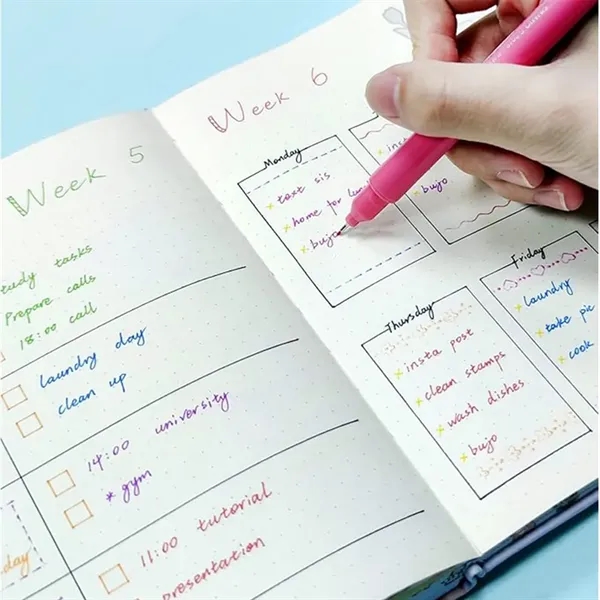 Week 5
tudy tasks
Prepare calls
18:00 call
laundry day
clean up
14:00 university
* gym
11:00 tutorial
presentation
day
Week 6
Monday
text sis
home for
bujo
bujo
Thursday
insta post
clean stamps
wash dishes
bujo
Friday
laundry
take pic
cook